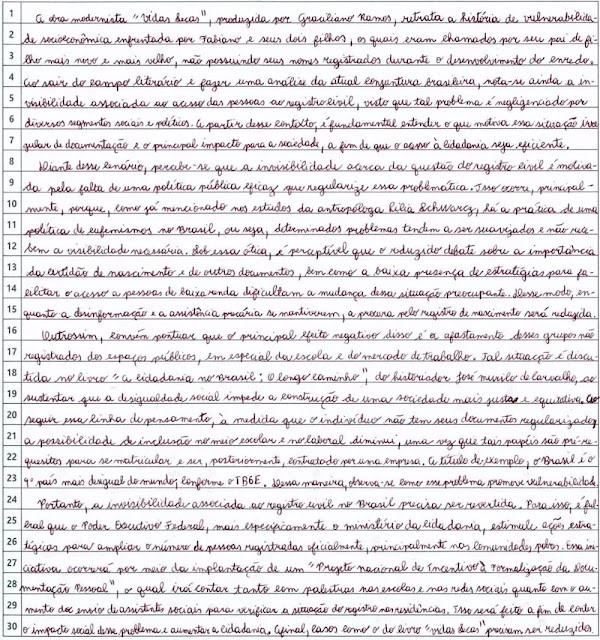 1 A obra modernista "Vidas Secas", produzida por Graciliano Ramos, retrata a história de vulnerabilida-
2 de socioeconômica enfrentada por Fabiano e seus dois filhos, os quais eram chamados por seu pai de fi-
3 lho mais novo e mais velho, não possuindo seus nomes registrados durante o desenvolvimento do enredo.
4 Ao sair do campo literário e fazer uma análise da atual conjuntura brasileira, nota-se ainda a in-
5 visibilidade associada ao acesso das pessoas ao registro civil, visto que tal problema é negligenciado por
6 diversos segmentos sociais e políticos. A partir desse contexto, é fundamental entender o que motiva essa situação irre-
7 gular de documentação e o principal impacto para a sociedade, a fim de que o acesso à cidadania seja eficiente.
8 Diante desse cenário, percebe-se que a invisibilidade acerca da questão do registro civil é motiva-
9 da pela falta de uma política pública eficaz que regularize essa problemática. Isso ocorre, principal-
10 mente, porque, como já mencionado nos estudos da antropóloga Lilia Schwarcz, há a prática de uma
11 política de eufemismos no Brasil, ou seja, determinados problemas tendem a ser suavizados e não rece-
12 bem a visibilidade necessária. Sob essa ótica, é perceptível que o reduzido debate sobre a importância
13 da certidão de nascimento e de outros documentos, bem como a baixa presença de estratégias para fa-
14 cilitar o acesso a pessoas de baixa renda dificultam a mudança dessa situação preocupante. Desse modo, en-
15 quanto a desinformação e a assistência precária se mantiverem, a procura pelo registro de nascimento será reduzida.
16 Outrossim, convém pontuar que o principal efeito negativo disso é o afastamento desses grupos não
17 registrados dos espaços públicos, em especial da escola e do mercado de trabalho. Tal situação é discu-
18 tida no livro "A cidadania no Brasil: O longo caminho", do historiador José Murilo de Carvalho, ao
19 sustentar que a desigualdade social impede a construção de uma sociedade mais justa e equitativa. Ao
20 seguir essa linha de pensamento, à medida que o indivíduo não tem seus documentos regularizados,
21 a possibilidade de inclusão no meio escolar e no laboral diminui, uma vez que tais papéis são pré-re-
22 quesitos para se matricular e ser, posteriormente, contratado por uma empresa. A título de exemplo, o Brasil é o
23 9º país mais desigual do mundo, conforme o IBGE. Dessa maneira, observa-se como esse problema promove vulnerabilidade.
24 Portanto, a invisibilidade associada ao registro civil no Brasil precisa ser revertida. Para isso, é ful-
25 cral que o Poder Executivo Federal, mais especificamente o ministério da cidadania, estimule ações estra-
26 tégicas para ampliar o número de pessoas registradas oficialmente, principalmente nas comunidades pobres. Essa ini-
27 ciativa ocorrerá por meio da implantação de um "Projeto nacional de Incentivo à Formalização da Docu-
28 mentação Pessoal", o qual irá contar tanto com palestras nas escolas e nas redes sociais quanto com o au-
29 mento dos envio de assistentes sociais para verificar a situação do registro nas residências. Isso será feito a fim de conter
30 o impacto social desse problema e aumentar a cidadania. Afinal, casos como o do livro "Vidas Secas" precisam ser reduzidos.